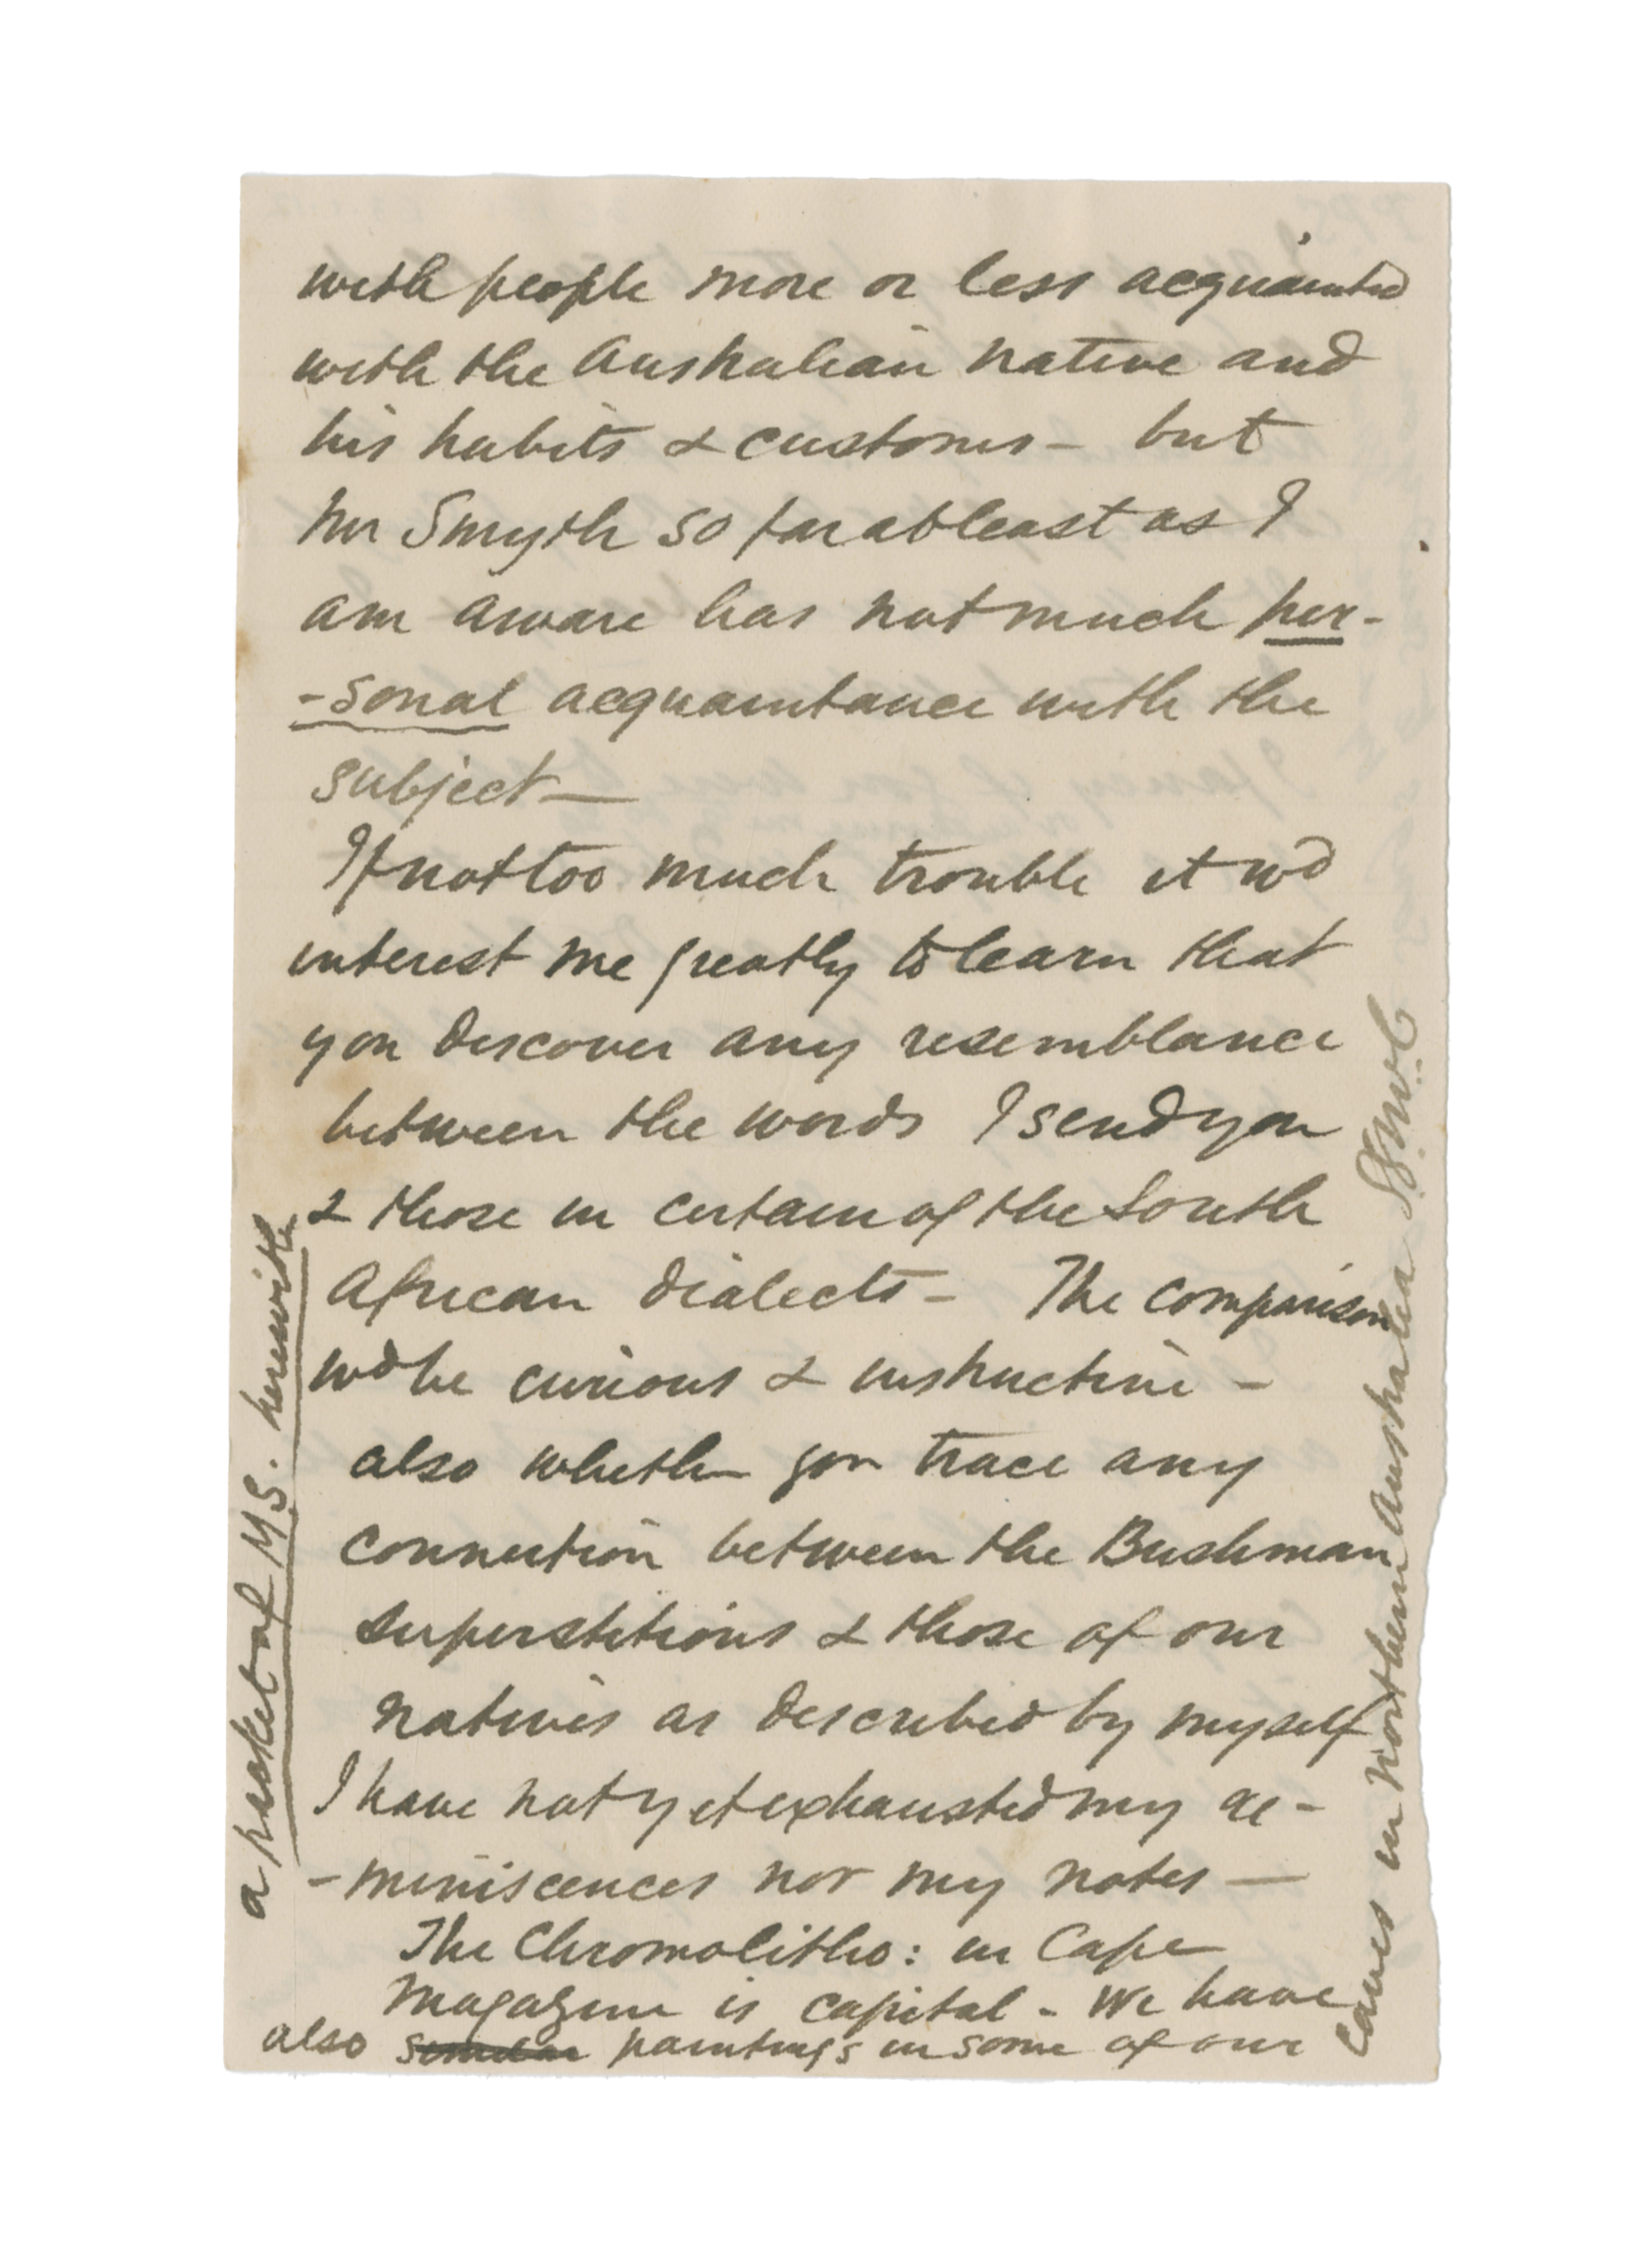 with people more or less acquainted
with the Australian native and
his habits & customs - but
Mr Smyth so far at least as I
am aware has not much per-
-sonal acquaintance with the
subject —
If not too much trouble it wd
interest me greatly to learn that
you discover any resemblance
between the words I send you
& those in certain of the South
African dialects - The comparison
wd be curious & instructive -
also whether you trace any
connection between the Bushman
superstitions & those of our
natives as described by myself
I have not yet exhausted my re-
-miniscences nor my notes —
The Chromolitho: in Cape
Magazine is capital - We have
also similar paintings in some of our
caves in Northern Australia
a packet of M.S. herewith